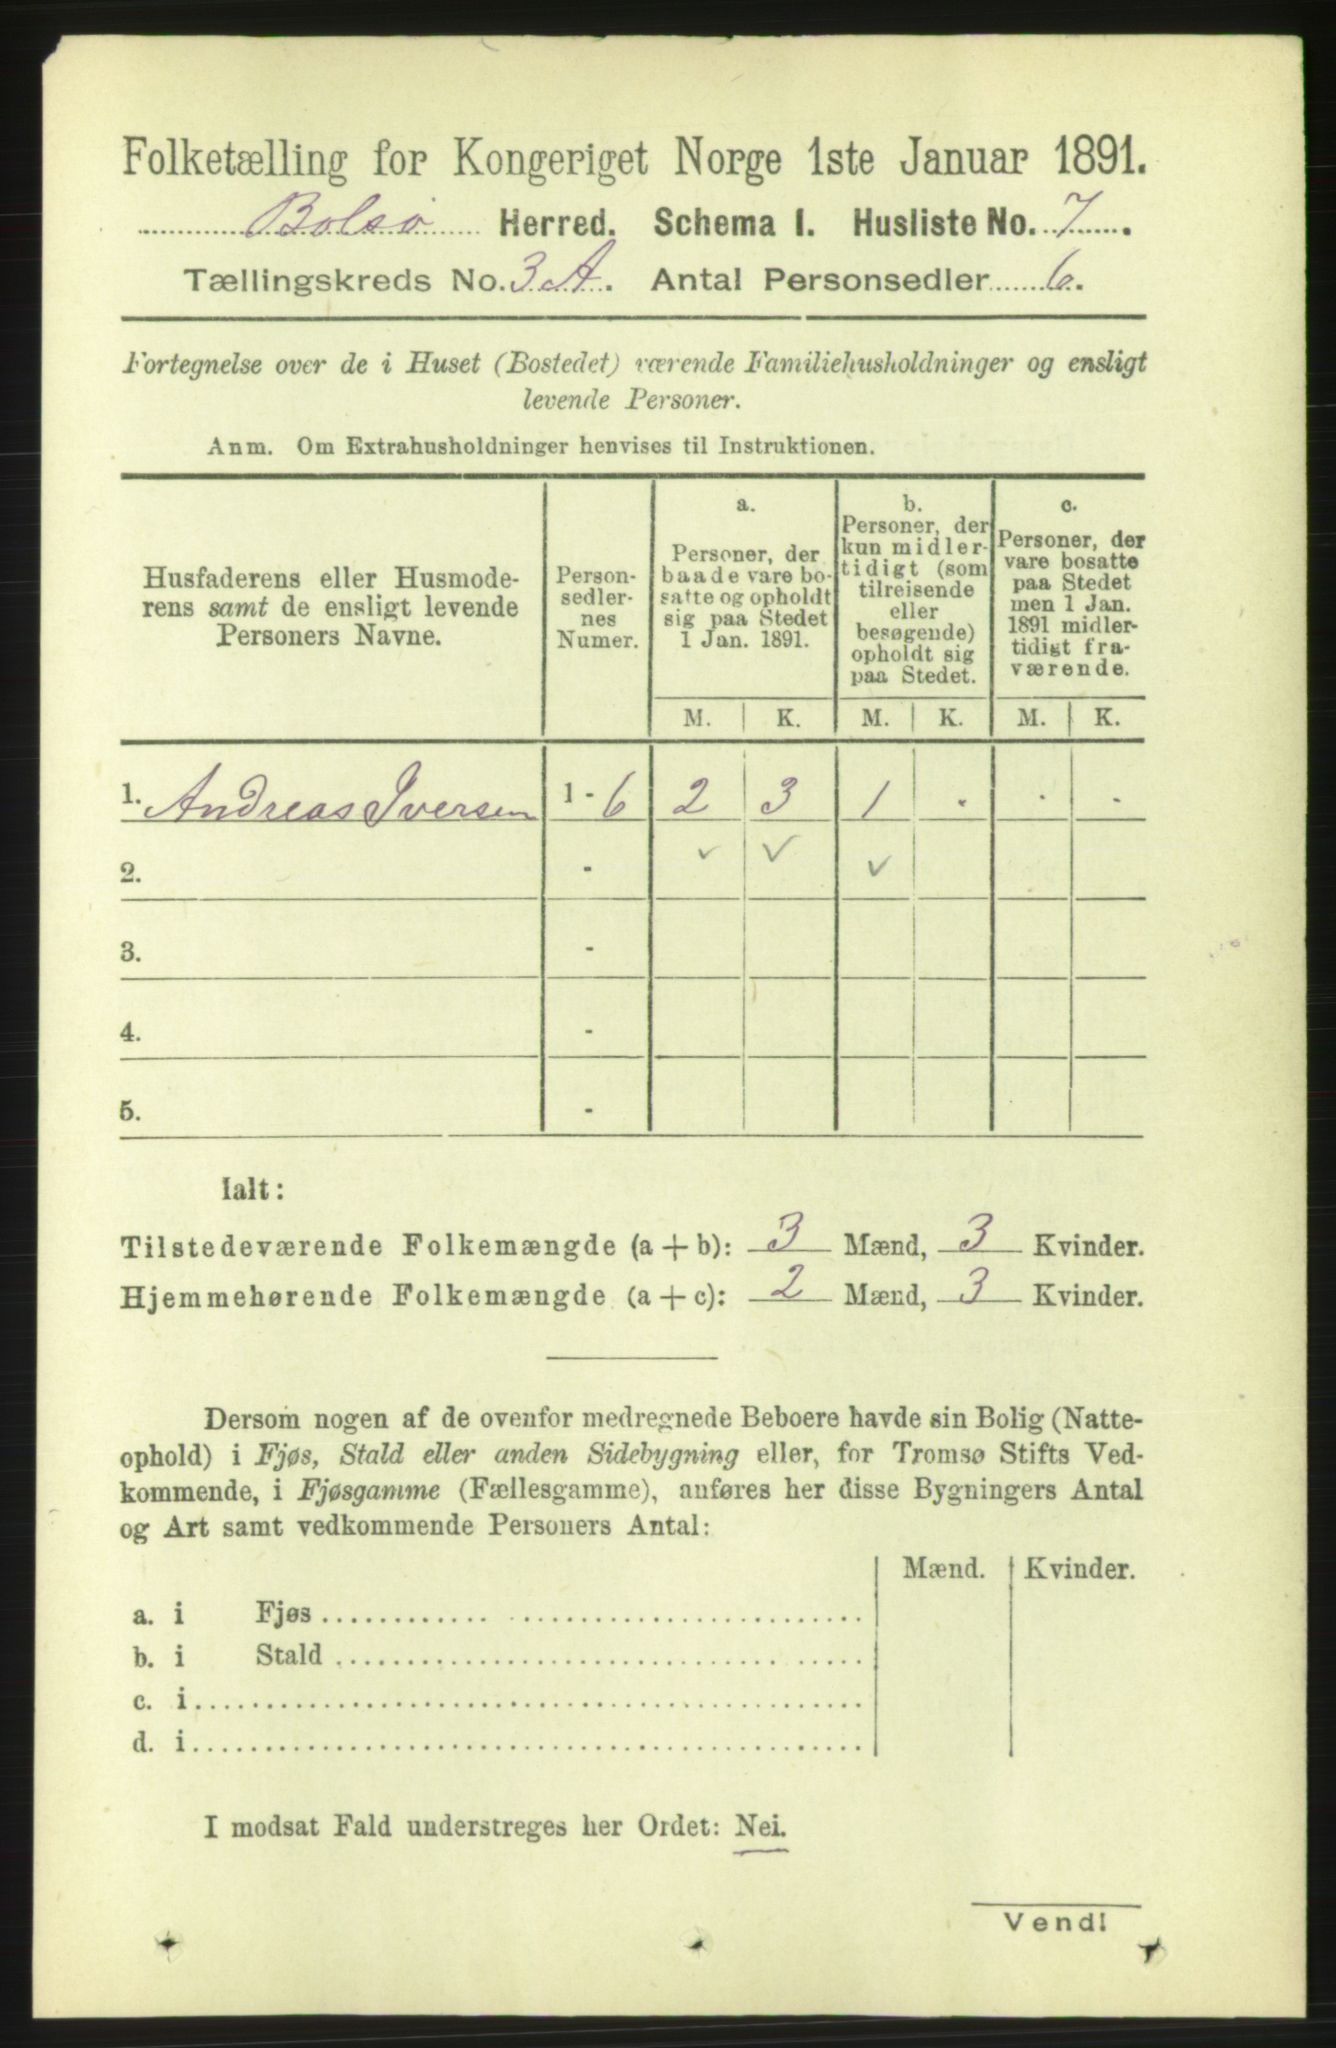 Folketælling for Kongeriget Norge 1ste Januar 1891.
Bolsø Herred. Schema I. Husliste No. 7.
Tællingskreds No. 3 A. Antal Personsedler 6.
Fortegnelse over de i Huset (Bostedet) værende Familiehusholdninger og ensligt
levende Personer.
Anm. Om Extrahusholdninger henvises til Instruktionen.
Husfaderens eller Husmode-
rens samt de ensligt levende
Personers Navne.
Person-
sedler-
nes
Numer.
a.
Personer, der
baade vare bo-
satte og opholdt
sig paa Stedet
1 Jan. 1891.
b.
Personer, der
kun midler-
tidigt (som
tilreisende
eller
besøgende)
opholdt sig
paa Stedet.
c.
Personer, der
vare bosatte
paa Stedet
men 1 Jan.
1891 midler-
tidigt fra-
værende.
M. K. M. K. M. K.
1. Andreas Iversen 1 - 6 2 3 1 . . .
2. -
3. -
4. -
5. -
Ialt:
Tilstedeværende Folkemængde (a + b): 3 Mænd, 3 Kvinder.
Hjemmehørende Folkemængde (a + c): 2 Mænd, 3 Kvinder.
Dersom nogen af de ovenfor medregnede Beboere havde sin Bolig (Natte-
ophold) i Fjøs, Stald eller anden Sidebygning eller, for Tromsø Stifts Ved-
kommende, i Fjøsgamme (Fællesgamme), anføres her disse Bygningers Antal
og Art samt vedkommende Personers Antal:
Mænd. Kvinder.
a. i Fjøs
b. i Stald
c. i
d. i
I modsat Fald understreges her Ordet: Nei.
Vend!